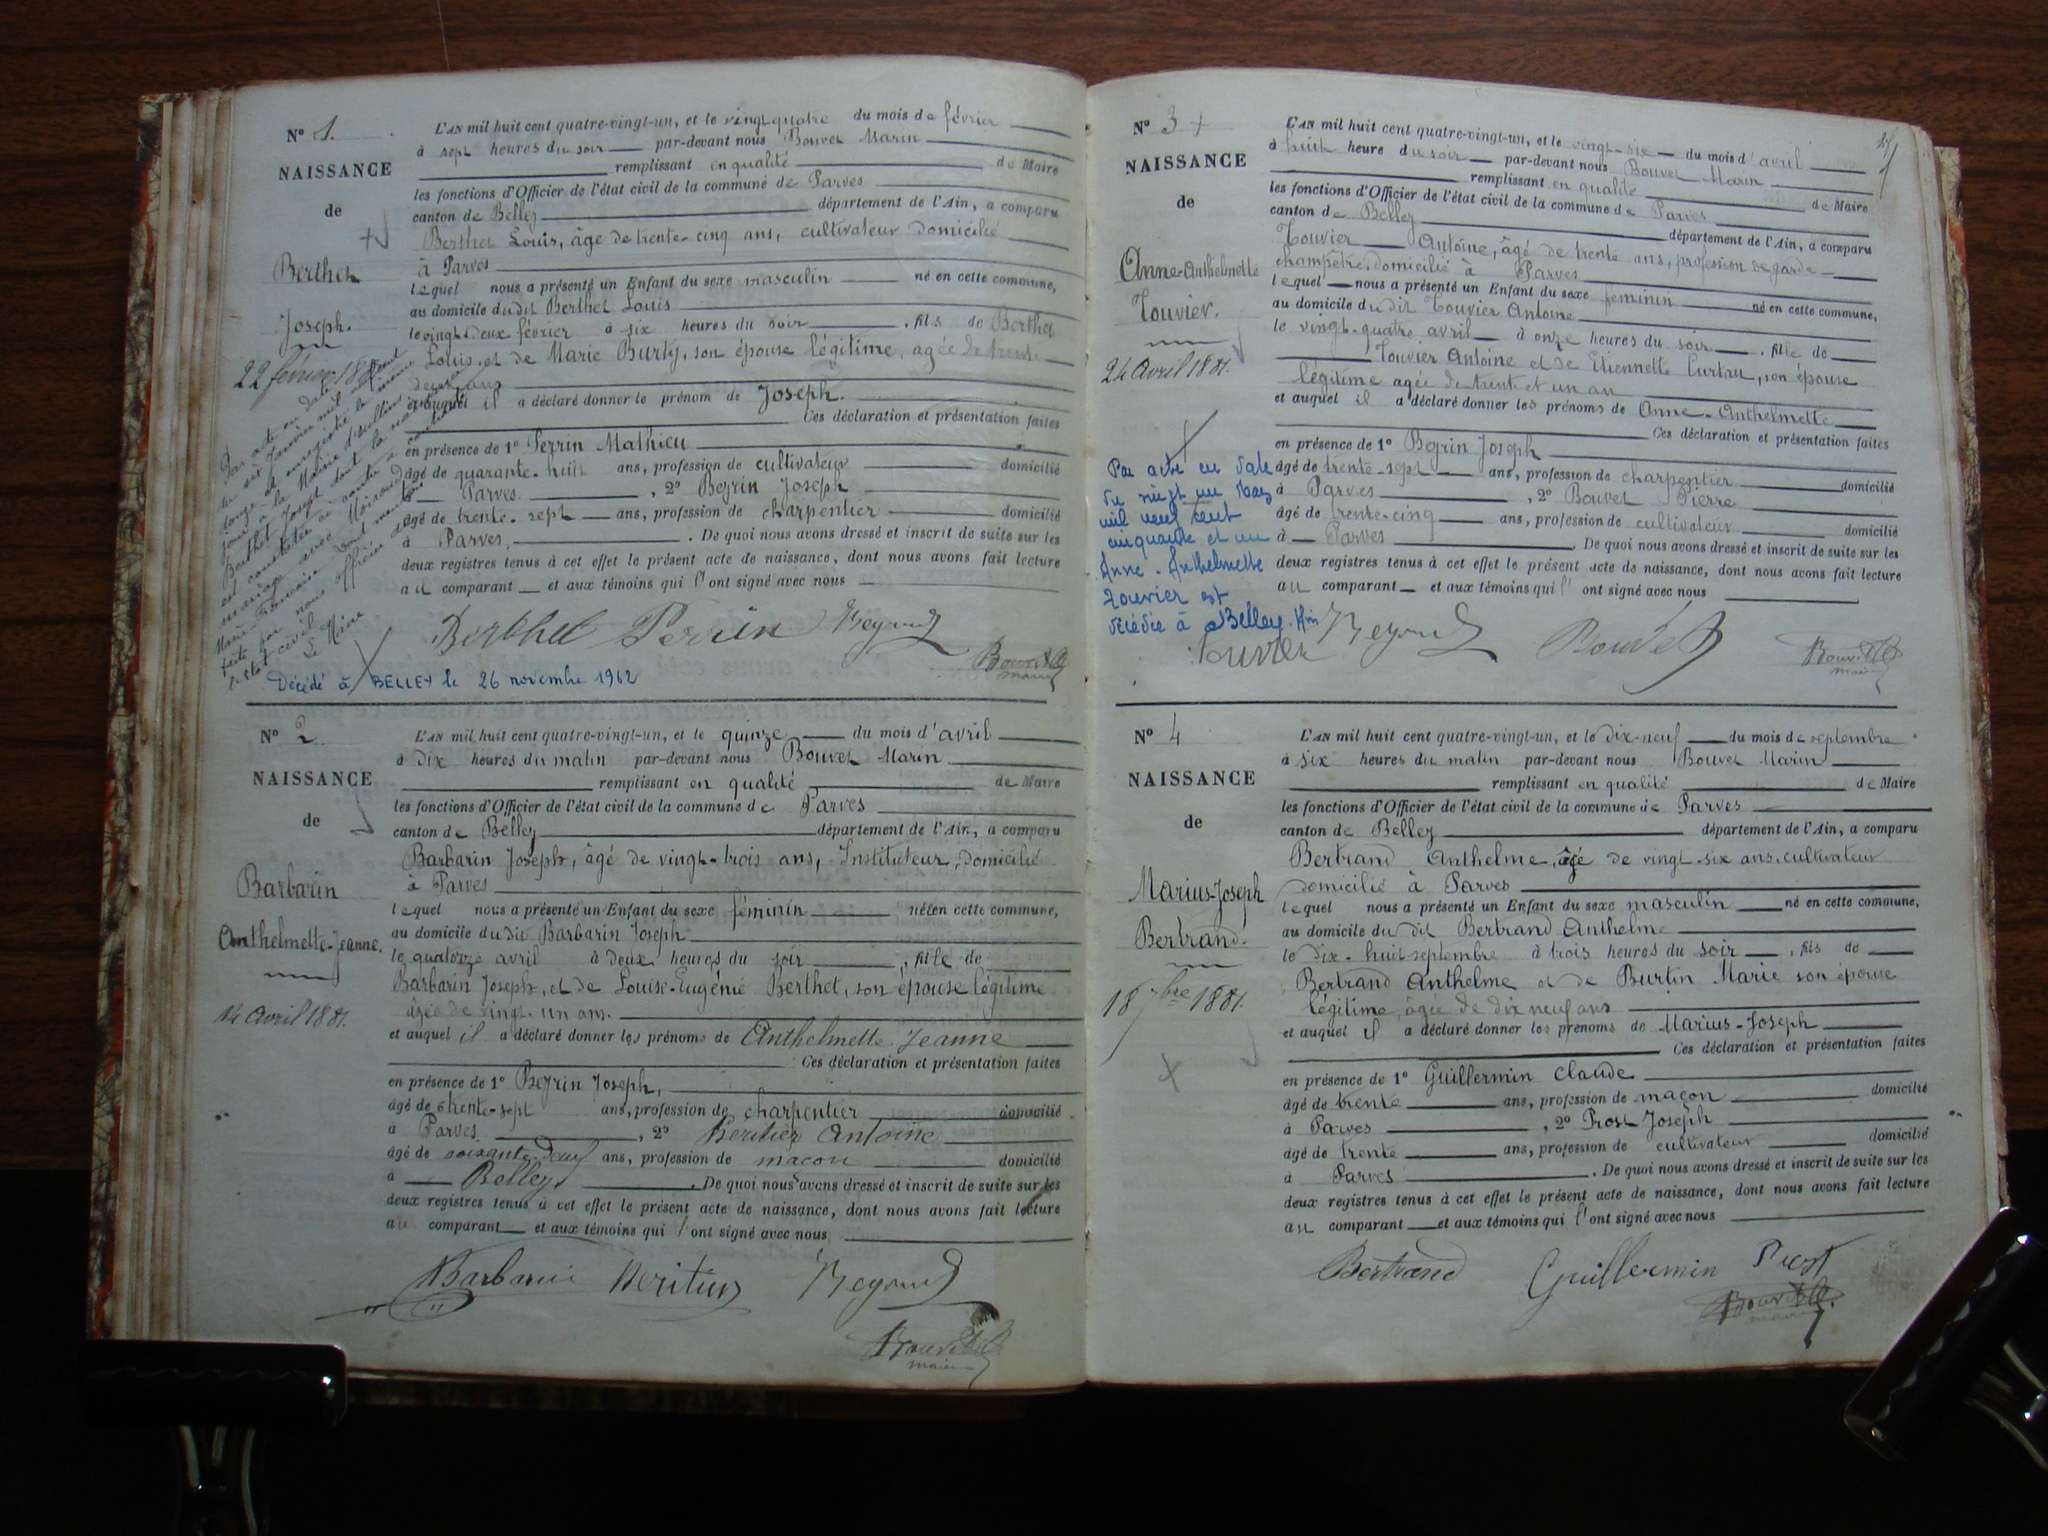 N° 1.
NAISSANCE
de
Berthet
Joseph.
22 février 1881
L'AN mil huit cent quatre-vingt-un, et le vingt quatre du mois de février
à sept heures du soir par-devant nous Bouvet Marin
remplissant en qualité de Maire
les fonctions d'Officier de l'état civil de la commune de Parves
canton de Belley département de l'Ain, a comparu
Berthet Louis, âgé de trente-cinq ans, cultivateur domicilié
à Parves
lequel nous a présenté un Enfant du sexe masculin né en cette commune,
au domicile du dit Berthet Louis
le vingt-deux février à six heures du soir, fils de Berthet
Louis, et de Marie Burty, son épouse légitime, agée de trente
deux ans
et auquel il a déclaré donner le prénom de Joseph.
Ces déclaration et présentation faites
en présence de 1° Perrin Mathieu
âgé de quarante-huit ans, profession de cultivateur domicilié
à Parves, 2° Beyrin Joseph
âgé de trente-sept ans, profession de charpentier domicilié
à Parves. De quoi nous avons dressé et inscrit de suite sur les
deux registres tenus à cet effet le présent acte de naissance, dont nous avons fait lecture
au comparant et aux témoins qui l'ont signé avec nous
Par acte en date
du six janvier mil neuf cent
jour à la Mairie
Berthet Joseph dont la naissance
est constatée ci contre a contracté
mariage avec
faite par nous officier de
l'état civil
Le Maire
Berthet Perrin
maire
Décédé à BELLEY le 26 novembre 1962
N° 2.
NAISSANCE
de
Barbarin
Anthelmette-Jeanne.
14 avril 1881.
L'AN mil huit cent quatre-vingt-un, et le quinze du mois d'avril
à dix heures du matin par-devant nous Bouvet Marin
remplissant en qualité de Maire
les fonctions d'Officier de l'état civil de la commune de Parves
canton de Belley département de l'Ain, a comparu
Barbarin Joseph, âgé de vingt-trois ans, Instituteur, domicilié
à Parves
lequel nous a présenté un Enfant du sexe féminin né en cette commune,
au domicile du dit Barbarin Joseph
le quatorze avril à deux heures du soir, fille de
Barbarin Joseph, et de Louise-Eugénie Berthet, son épouse légitime
âgée de vingt-un an.
et auquel il a déclaré donner les prénoms de Anthelmette Jeanne
Ces déclaration et présentation faites
en présence de 1° Beyrin Joseph,
âgé de trente-sept ans, profession de charpentier domicilié
à Parves, 2° Heritier Antoine
âgé de soixante-deux ans, profession de maçon domicilié
à Belley. De quoi nous avons dressé et inscrit de suite sur les
deux registres tenus à cet effet le présent acte de naissance, dont nous avons fait lecture
au comparant et aux témoins qui l'ont signé avec nous
Barbarin Heritier
maire
N° 3
NAISSANCE
de
Anne-Anthelmette
Touvier.
24 avril 1881.
L'AN mil huit cent quatre-vingt-un, et le vingt-six du mois d'avril
à huit heure du soir par-devant nous Bouvet Marin
remplissant en qualité de Maire
les fonctions d'Officier de l'état civil de la commune de Parves
canton de Belley département de l'Ain, a comparu
Touvier Antoine, âgé de trente ans, profession de garde
champêtre, domicilié à Parves
lequel nous a présenté un Enfant du sexe féminin né en cette commune,
au domicile du dit Touvier Antoine
le vingt-quatre avril à onze heures du soir, fille de
Touvier Antoine et de Etiennette Curtau, son épouse
légitime agée de trent et un an
et auquel il a déclaré donner les prénoms de Anne-Anthelmette
Ces déclaration et présentation faites
en présence de 1° Beyrin Joseph
âgé de trente-sept ans, profession de charpentier domicilié
à Parves, 2° Bouvet Pierre
âgé de trente-cinq ans, profession de cultivateur domicilié
à Parves. De quoi nous avons dressé et inscrit de suite sur les
deux registres tenus à cet effet le présent acte de naissance, dont nous avons fait lecture
au comparant et aux témoins qui l'ont signé avec nous
Par acte en date
du vingt un Mars
mil neuf cent
cinquante et un
Anne-Anthelmette
Touvier est
décédée à Belley. Ain
Touvier Bouvet
maire
N° 4
NAISSANCE
de
Marius-Joseph
Bertrand.
18 7bre 1881.
L'AN mil huit cent quatre-vingt-un, et le dix-neuf du mois de septembre
à six heures du matin par-devant nous Bouvet Marin
remplissant en qualité de Maire
les fonctions d'Officier de l'état civil de la commune de Parves
canton de Belley département de l'Ain, a comparu
Bertrand Anthelme, âgé de vingt-six ans, cultivateur
domicilié à Parves
lequel nous a présenté un Enfant du sexe masculin né en cette commune,
au domicile du dit Bertrand Anthelme
le dix-huit septembre à trois heures du soir, fils de
Bertrand Anthelme et de Burtin Marie son épouse
légitime, âgée de dix neuf ans
et auquel il a déclaré donner les prénoms de Marius-Joseph
Ces déclaration et présentation faites
en présence de 1° Guillermin Claude
âgé de trente ans, profession de maçon domicilié
à Parves, 2° Prost Joseph
âgé de trente ans, profession de cultivateur domicilié
à Parves. De quoi nous avons dressé et inscrit de suite sur les
deux registres tenus à cet effet le présent acte de naissance, dont nous avons fait lecture
au comparant et aux témoins qui l'ont signé avec nous
Bertrand Guillermin Prost
maire